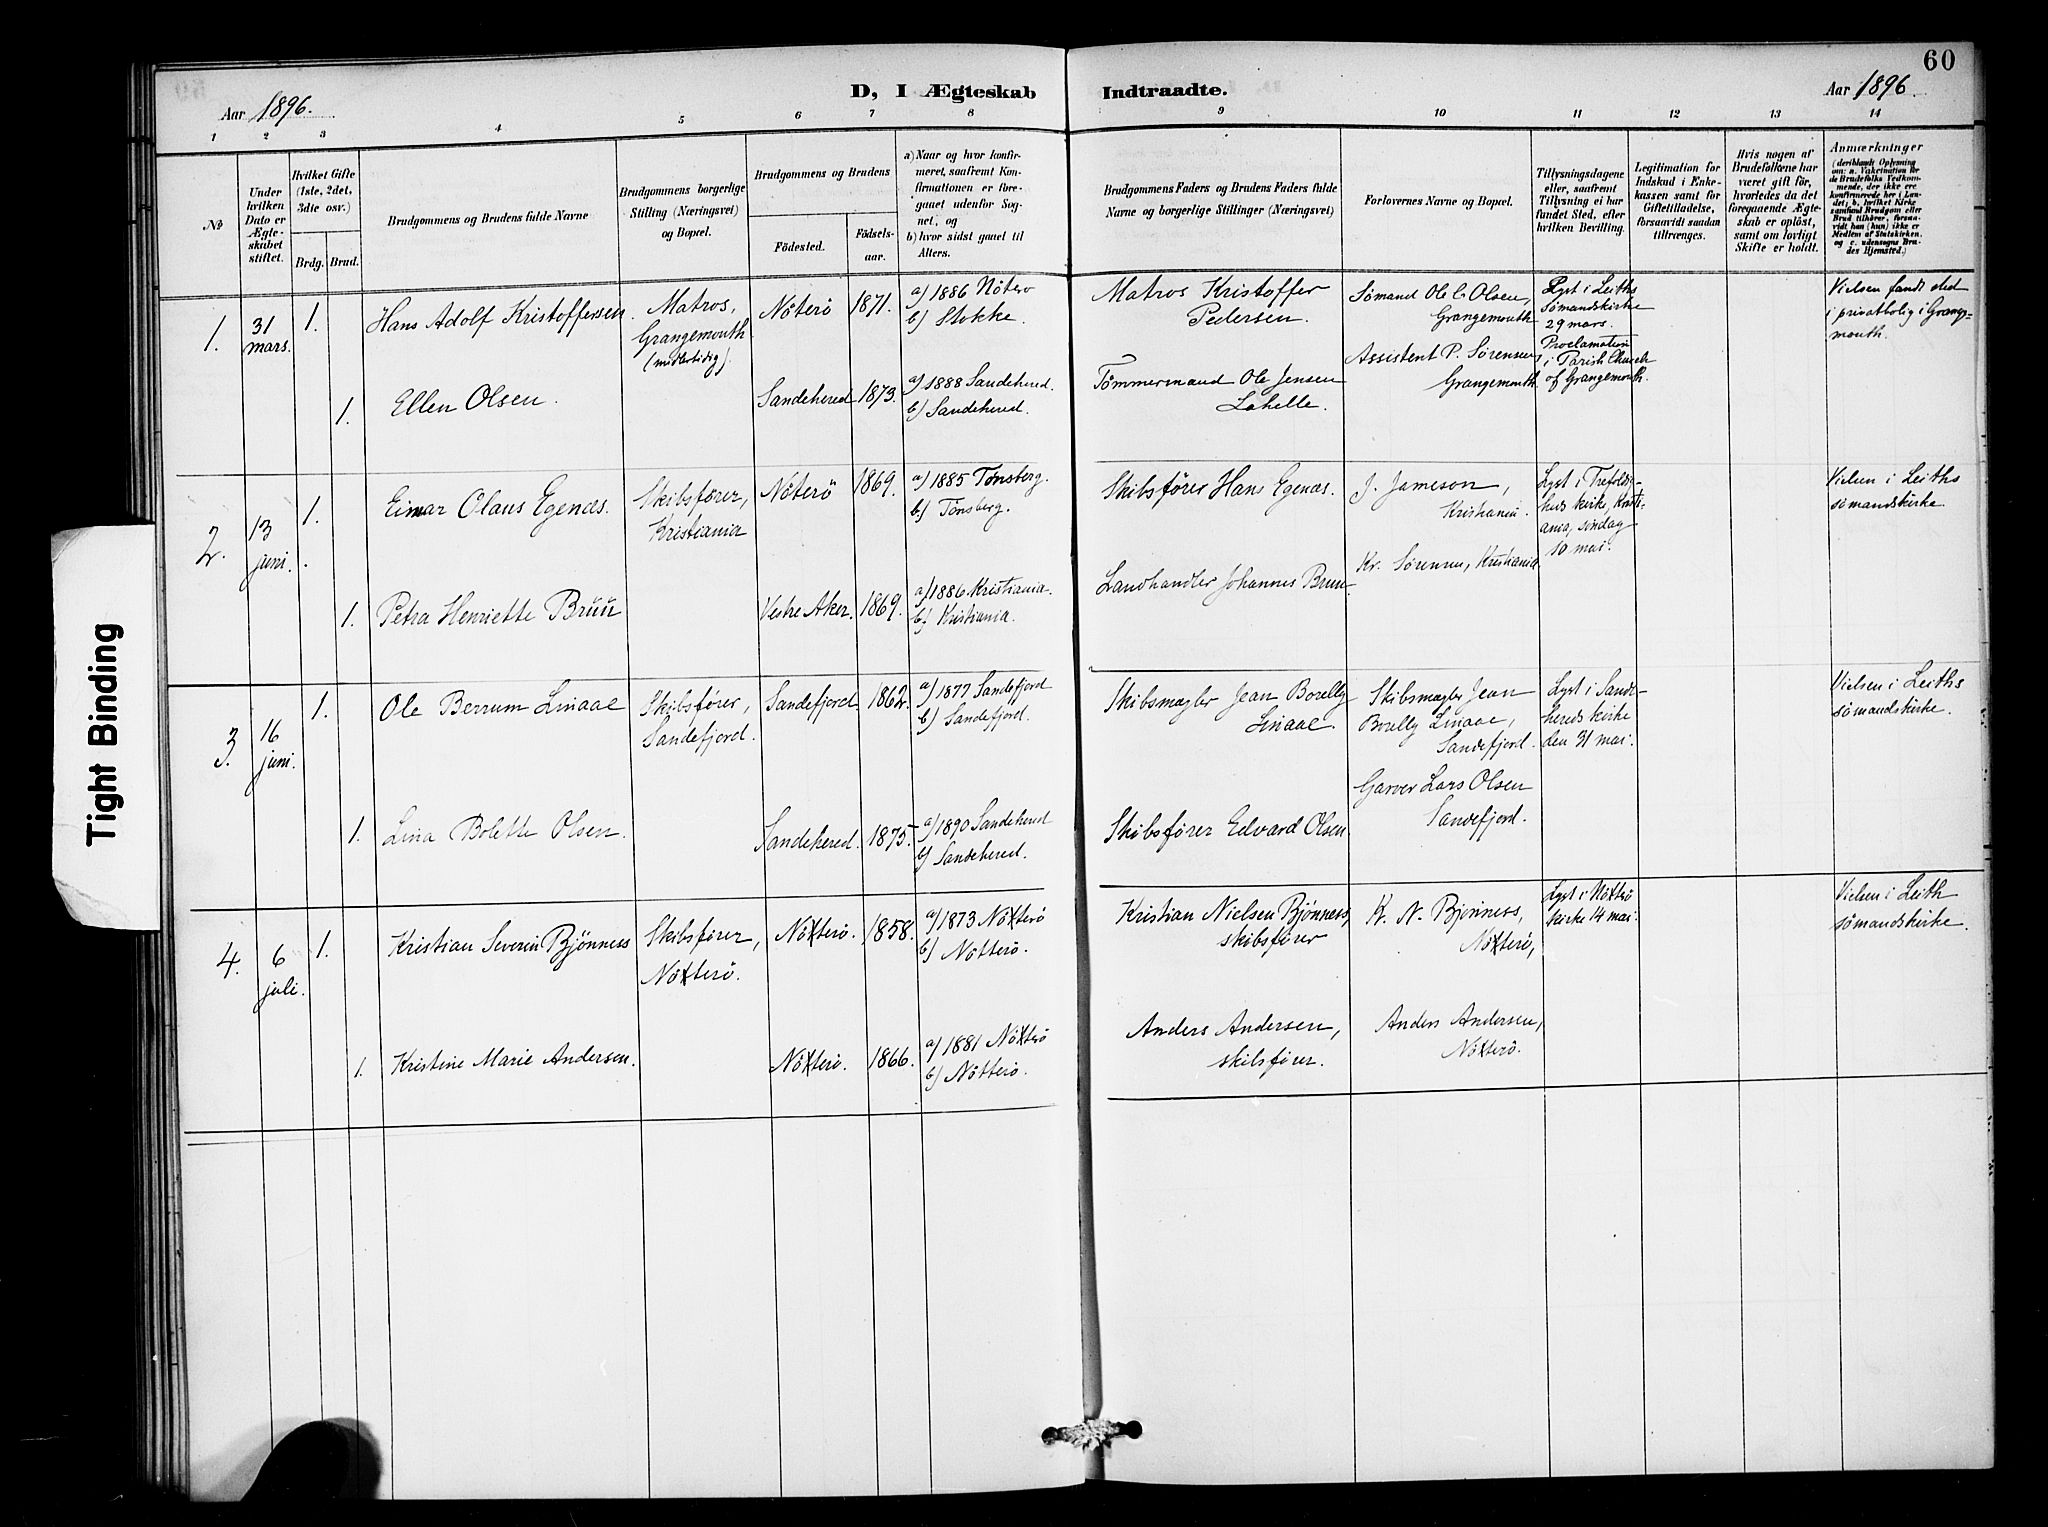 60
Aar 1896.
D, I Ægteskab Indtraadte.
Aar 1896.
1 2 3 4 5 6 7 8 9 10 11 12 13 14
№
Under hvilken Dato er Ægteskabet stiftet.
Hvilket Gifte (1ste, 2det, 3dte osv.)
Brdg. Brud.
Brudgommens og Brudens fulde Navne
Brudgommens borgerlige Stilling (Næringsvei) og Bopæl.
Brudgommens og Brudens
Födested.
Födselsaar.
a) Naar og hvor konfirmeret, saafremt Konfirmationen er foregaaet udenfor Sognet, og
b) hvor sidst gaaet til Alters.
Brudgommens Faders og Brudens Faders fulde Navne og borgerlige Stillinger (Næringsvei)
Forlovernes Navne og Bopæl.
Tillysningsdagene eller, saafremt Tillysning ei har fundet Sted, efter hvilken Bevilling.
Legitimation for Indskud i Enkekassen samt for Giftetilladelse, forsaavidt saadan tiltrænges.
Hvis nogen af Brudefolkene har været gift för, hvorledes da det foregaaende Ægteskab er oplöst, samt om lovligt Skifte er holdt.
Anmærkninger
(deriblandt Oplysning om: a. Vakcination for de Brudefolks Vedkommende, der ikke ere konfirmerede her i Landet; b. hvilket Kirkesamfund Brudgom eller Brud tilhörer, forsaavidt han (hun) ikke er Medlem af Statskirken, og c. udensogns Brudes Hjemsted.)
1.
31 mars.
1.
Hans Adolf Kristoffersen.
Matros, Grangemouth (midlertidig).
Nöterö
1871.
a) 1886 Nöterö
b) Stokke.
Matros Kristoffer Pedersen.
Sømand Ole C. Olsen, Grangemouth
Lyst i Leiths Sømandskirke 29 mars.
Vielsen fandt sted i privatbolig i Grangemouth.
1.
Ellen Olsen.
Sandehered
1873.
a) 1888 Sandehered.
b) Sandehered.
Tømmermand Ole Jensen Lahelle.
Assistent P. Sørensen, Grangemouth
Proclamation i Parish Church of Grangemouth.
2.
13 juni.
1.
Einar Olaus Egenæs.
Skibsfører, Kristiania
Nöterö
1869.
a) 1885 Tønsberg.
b) Tönsberg.
Skibsfører Hans Egenæs.
J. Jameson, Kristiania.
Lyst i Trefoldigheds kirke, Kristiania, søndag 10 mai.
Vielsen i Leiths sömandskirke
1.
Petra Henriette Bruu
Vestre Aker.
1869.
a) 1886 Kristiania.
b) Kristiania.
Landhandler Johannes Bruu.
Kr. Sörensen, Kristiania
3.
16 juni.
1.
Ole Berrum Linaae
Skibsfører, Sandefjord.
Sandefjord.
1862.
a) 1877 Sandefjord
b) Sandefjord.
Skibsmægler Jean Borelly Linaae.
Skibsmægler Jean Borelly Linaae, Sandefjord.
Lyst i Sandehereds kirke den 31 mai.
Vielsen i Leiths sömandskirke.
1.
Lina Bolette Olsen.
Sandehered.
1875.
a) 1890 Sandehered
b) Sandehered.
Skibsfører Edvard Olsen
Garver Lars Olsen Sandefjord.
4.
6 juli.
1.
Kristian Severin Bjönness
Skibsfører, Nötterö.
Nötterö.
1858.
a) 1873 Nötterö
b) Nötterö.
Kristian Nielsen Bjönness, skibsfører
K. N. Bjönness, Nötterö,
Lyst i Nötterö kirke 14 mai.
Vielsen i Leith sömandskirke.
1.
Kristine Marie Andersen.
Nötterö.
1866.
a) 1881 Nötterö
b) Nötterö.
Anders Andersen, skibsfører.
Anders Andersen, Nötterö.
Tight Binding